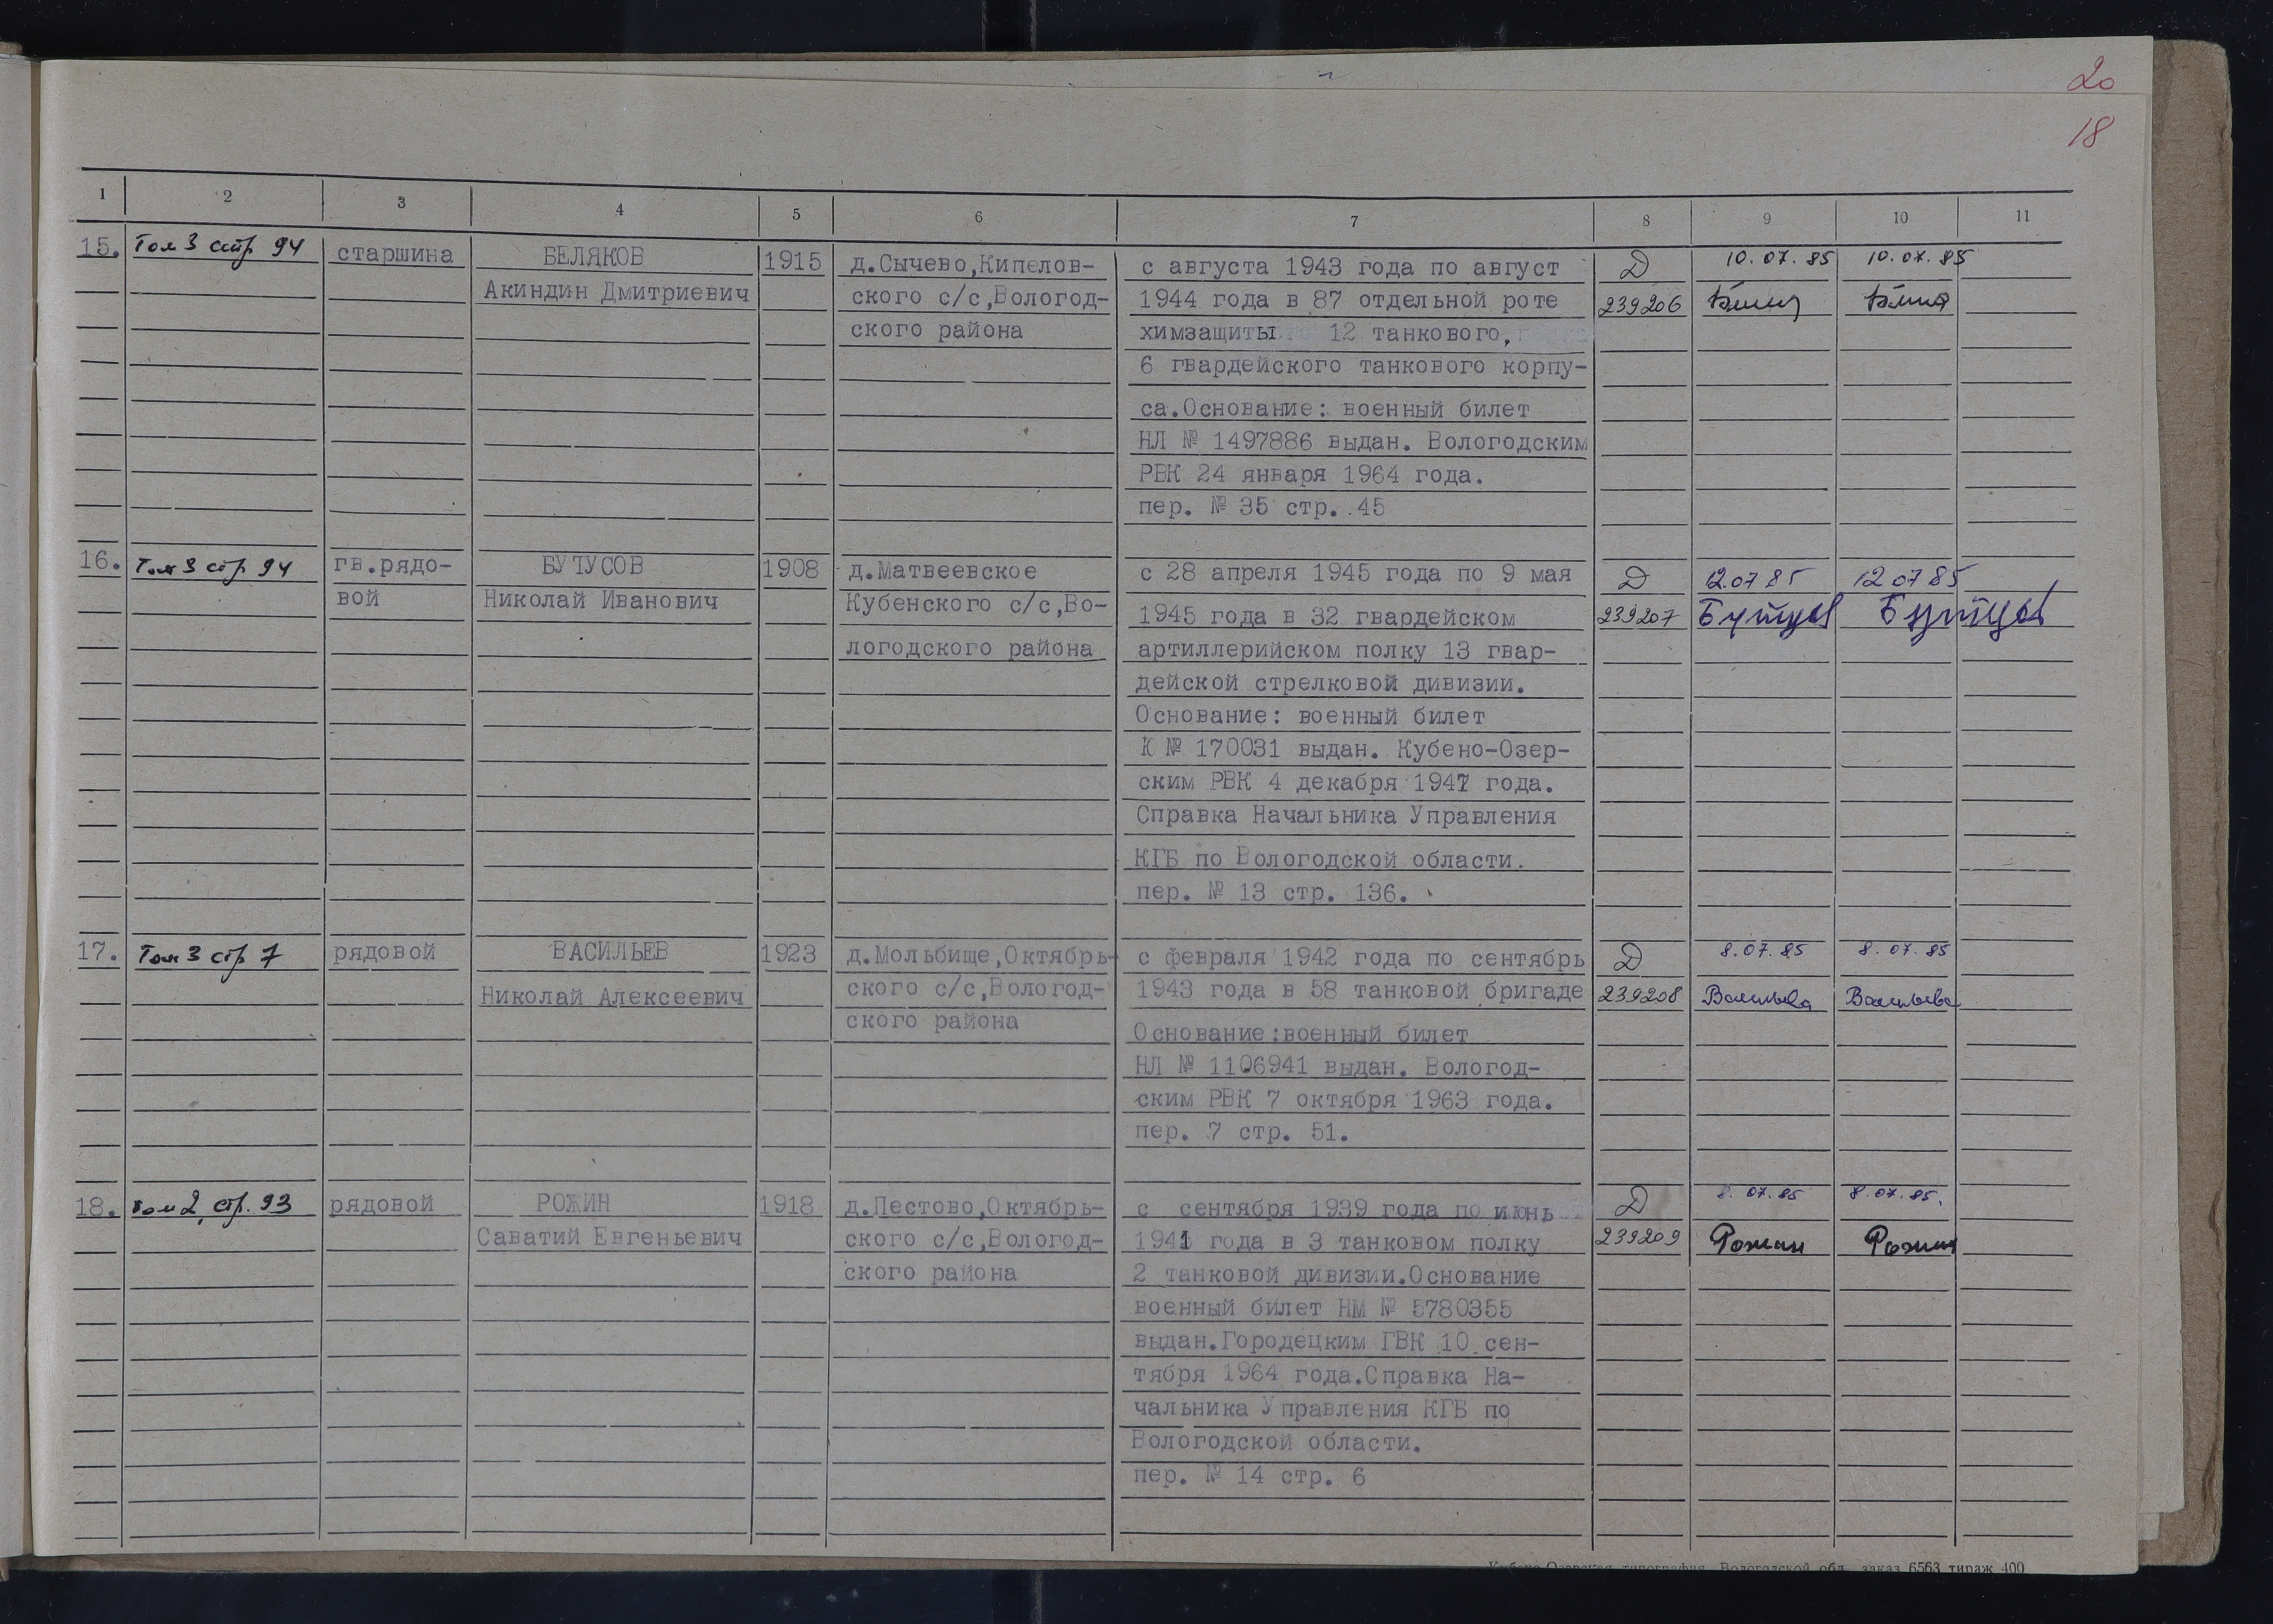 20
18
1 2 3 4 5 6 7 8 9 10 11
15. Том 3 стр 94 старшина БЕЛЯКОВ 1915 д.Сычево,Кипелов- с августа 1943 года по август Д 10.07.85 10.07.85
Акиндин Дмитриевич ского с/с,Вологод- 1944 года в 87 отдельной роте 239206
ского района химзащиты 12 танкового,
6 гвардейского танкового корпу-
са.Основание: военный билет
НЛ № 1497886 выдан. Вологодским
РВК 24 января 1964 года.
пер. № 35 стр. 45
16. Том 3 стр 94 гв.рядо- БУТУСОВ 1908 д.Матвеевское с 28 апреля 1945 года по 9 мая Д 12.07 85 12 07 85
вой Николай Иванович Кубенского с/с,Во- 1945 года в 32 гвардейском 239207 Бутусов Бутусов
логодского района артиллерийском полку 13 гвар-
дейской стрелковой дивизии.
Основание: военный билет
К № 170031 выдан. Кубено-Озер-
ским РВК 4 декабря 1947 года.
Справка Начальника Управления
КГБ по Вологодской области.
пер. № 13 стр. 136.
17. Том 3 стр 7 рядовой ВАСИЛЬЕВ 1923 д.Мольбище,Октябрь- с февраля 1942 года по сентябрь Д 8.07.85 8.07.85
Николай Алексеевич ского с/с,Вологод- 1943 года в 58 танковой бригаде 239208 Васильева Васильева
ского района Основание:военный билет
НЛ № 1106941 выдан. Вологод-
ским РВК 7 октября 1963 года.
пер. 7 стр. 51.
18. Том 2, стр. 93 рядовой РОЖИН 1918 д.Пестово,Октябрь- с сентября 1939 года по июнь Д 8.07.85 8.07.85.
Саватий Евгеньевич ского с/с,Вологод- 1941 года в 3 танковом полку 239209 Рожин Рожин
ского района 2 танковой дивизии.Основание
военный билет НМ № 5780355
выдан.Городецким ГВК 10 сен-
тября 1964 года.Справка На-
чальника Управления КГБ по
Вологодской области.
пер. № 14 стр. 6
Кубено-Озерская типография Вологодской обл. заказ 6563 тираж 400